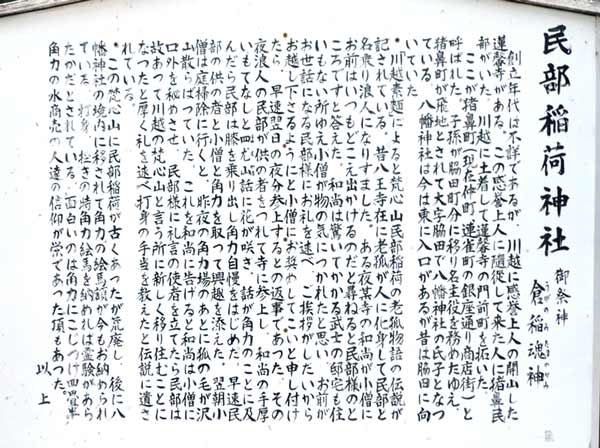 民部稲荷神社
御祭神
倉稲魂神
うがのみたまのかみ
創立年代は不詳であるが、川越に感誉上人の開山した
蓮馨寺がある。この感誉上人に随従して来た人に猪鼻民
部がいた。川越に土着して蓮馨寺の門前町を拓いた。
ここが猪鼻町（現在仲町、連雀町の銀座通り商店街）と
呼ばれた。子孫が脇田町分に移り名主役を務めたゆえ、
猪鼻町が飛地とされて大字脇田で八幡神社の氏子となつ
ている。八幡神社は今は東に入口があるが昔は脇田に向
いていた。
*川越素麺によると梵心山民部稲荷の老狐物語の伝説が
記されている。昔八王寺在に老狐が人に化身して民部と
名乗り浪人になりすました。ある夜某寺の和尚が小僧に
お前はいつもどこえ出かけるのだと尋ねると民部様のと
ころですと答えた。和尚は驚いてかかる武士の邸宅も住
いもない所ゆえ小僧が物の気につかれたと思い、お前が
お世話になる民部様にお礼を述べ、ご挨拶がしたいから
お越し下さるようにと小僧にお奨めしてこいと申し付け
たら、早速翌日の夜分参上するとの返事であった。その
夜浪人の民部が供の者をつれて寺に参上し、和尚の手厚
いもてなしと四方山話に花が咲き、話が角力のことに及
んだら民部は膝を乗り出し角力自慢をはじめた。早速民
部の供の者と小僧と角力を取って興趣を添えた。翌朝小
僧は庭掃除に行くと、昨夜の角力場のあとに狐の毛が沢
山散らばつていた。これを和尚に告げると和尚は小僧に
口外を秘めさせ、民部様に礼言の使者を立てたら民部は
故あって川越の梵心山と言う所に新しく移り住むことに
なったと厚く礼を述べ打身の手当を教えたと伝説に遺さ
れている。
*この梵心山に民部稲荷が古くあったが荒廃し、後に八
幡神社の境内に移されて角力の絵馬額が今もお納められ
ている。打身、挫きの時角力絵馬を納めれば霊験があら
たかだとされている。面白いのは角力にこじつけ
角力の水商売の人達の信仰が栄であった頃もあった。
以上